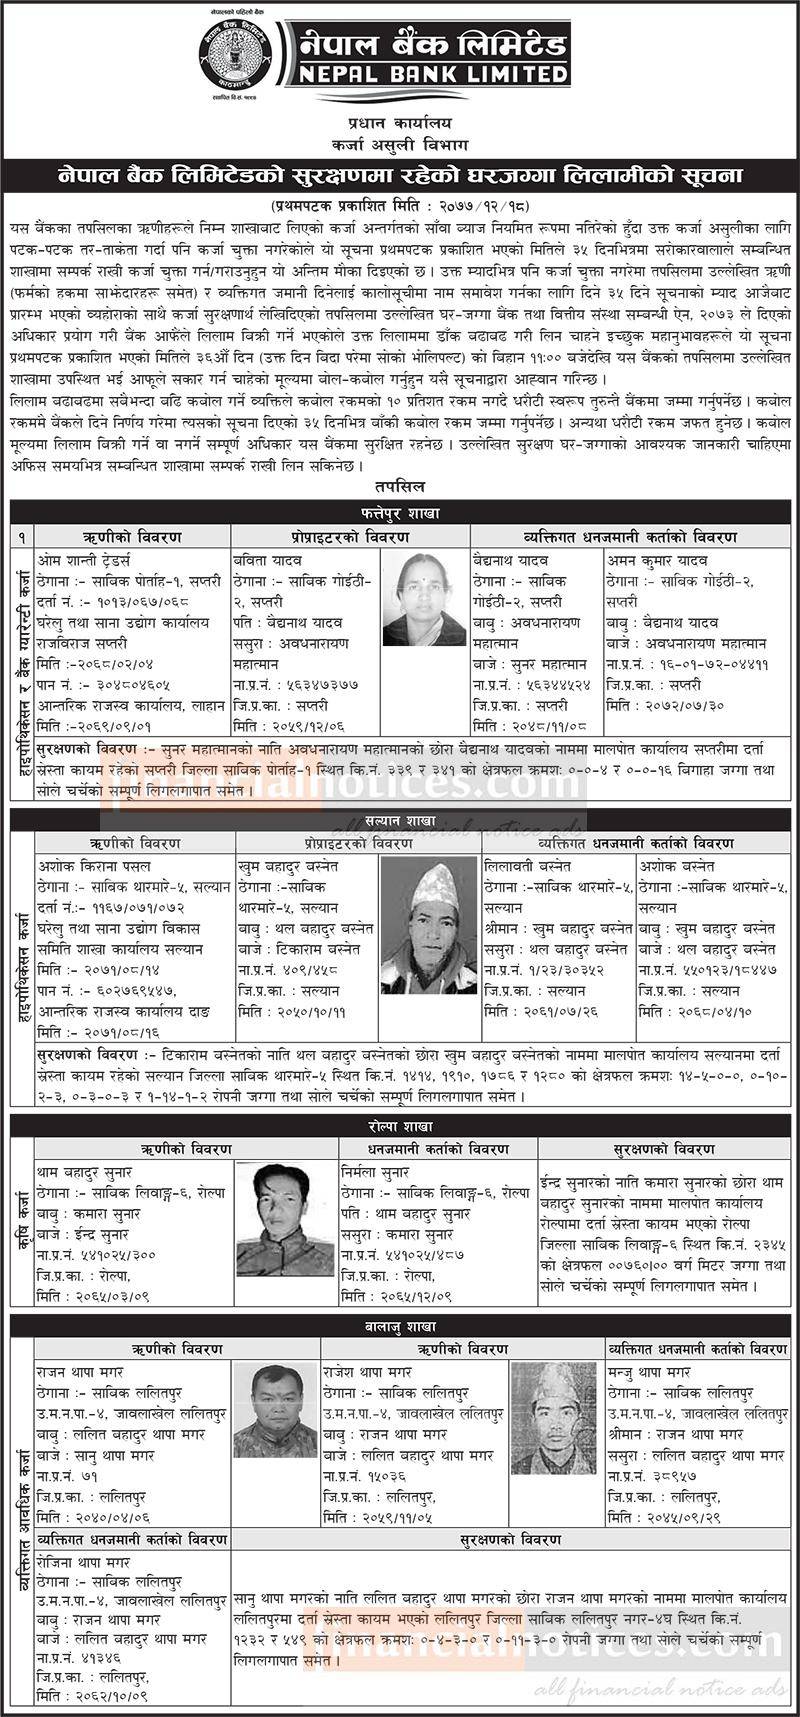 नेपालको पहिलो बैंक
नेपाल बैंक लिमिटेड
NEPAL BANK LIMITED
प्रधान कार्यालय
कर्जा असुली विभाग
नेपाल बैंक लिमिटेडको सुरक्षणमा रहेको घरजग्गा लिलामीको सूचना
(प्रथमपटक प्रकाशित मिति : २०७७/१२/१८)
यस बैंकका तपसिलका ऋणीहरूले निम्न शाखाबाट लिएको कर्जा अन्तर्गतको साँवा ब्याज नियमित रूपमा नतिरेको हुँदा उक्त कर्जा असुलीका लागि
पटक-पटक तर-ताकेता गर्दा पनि कर्जा चुक्ता नगरेकोले यो सूचना प्रथमपटक प्रकाशित भएको मितिले ३५ दिनभित्रमा सरोकारवालाले सम्बन्धित
शाखामा सम्पर्क राखी कर्जा चुक्ता गर्न/गराउनुहुन यो अन्तिम मौका दिइएको छ । उक्त म्यादभित्र पनि कर्जा चुक्ता नगरेमा तपसिलमा उल्लेखित ऋणी
(फर्मको हकमा साझेदारहरू समेत) र व्यक्तिगत जमानी दिनेलाई कालोसूचीमा नाम समावेश गर्नका लागि दिने ३५ दिने सूचनाको म्याद आजैबाट
प्रारम्भ भएको व्यहोराको साथै कर्जा सुरक्षणार्थ लेखिदिएको तपसिलमा उल्लेखित घर-जग्गा बैंक तथा वित्तीय संस्था सम्बन्धी ऐन, २०७३ ले दिएको
अधिकार प्रयोग गरी बैंक आफैले लिलाम बिक्री गर्ने भएकोले उक्त लिलाममा डाँक बढाबढ गरी लिन चाहने इच्छुक महानुभावहरूले यो सूचना
प्रथमपटक प्रकाशित भएको मितिले ३६औँ दिन (उक्त दिन बिदा परेमा सोको भोलिपल्ट) को बिहान ११:०० बजेदेखि यस बैंकको तपसिलमा उल्लेखित
शाखामा उपस्थित भई आफूले सकार गर्न चाहेको मूल्यमा बोल-कबोल गर्नुहुन यसै सूचनाद्वारा आह्वान गरिन्छ ।
लिलाम बढाबढमा सबैभन्दा बढि कबोल गर्ने व्यक्तिले कबोल रकमको १० प्रतिशत रकम नगदै धरौटी स्वरूप तुरुन्तै बैंकमा जम्मा गर्नुपर्नेछ । कबोल
रकममै बैंकले दिने निर्णय गरेमा त्यसको सूचना दिएको ३५ दिनभित्र बाँकी कबोल रकम जम्मा गर्नुपर्नेछ । अन्यथा धरौटी रकम जफत हुनेछ । कबोल
मूल्यमा लिलाम बिक्री गर्ने वा नगर्ने सम्पूर्ण अधिकार यस बैंकमा सुरक्षित रहनेछ । उल्लेखित सुरक्षण घर-जग्गाको आवश्यक जानकारी चाहिएमा
अफिस समयभित्र सम्बन्धित शाखामा सम्पर्क राखी लिन सकिनेछ ।
तपसिल
फत्तेपुर शाखा
१ ऋणीको विवरण प्रोप्राइटरको विवरण व्यक्तिगत धनजमानी कर्ताको विवरण
हाइपोथिकेसन र बैंक ग्यारेन्टी कर्जा
ओम शान्ती ट्रेडर्स
ठेगाना :- साविक पोर्ताह-१, सप्तरी
दर्ता नं. :- १०१३/०६७/०६८
घरेलु तथा साना उद्योग कार्यालय
राजविराज सप्तरी
मिति :-२०६८/०२/०४
पान नं. :- ३०४८०४६०५
आन्तरिक राजस्व कार्यालय, लाहान
मिति :-२०६९/०९/०१
बविता यादव
ठेगाना :- साविक गोईठी-
२, सप्तरी
पति : बैद्यनाथ यादव
ससुरा : अवधनारायण
महात्मान
ना.प्र.नं. : ५६३४७३७७
जि.प्र.का. : सप्तरी
मिति : २०५९/१२/०६
बैद्यनाथ यादव
ठेगाना :- साविक
गोईठी-२, सप्तरी
बाबु : अवधनारायण
महात्मान
बाजे : सुनर महात्मान
ना.प्र.नं. : ५६३४४५२४
जि.प्र.का. : सप्तरी
मिति : २०४८/११/०८
अमन कुमार यादव
ठेगाना :- साविक गोईठी-२,
सप्तरी
बाबु : बैद्यनाथ यादव
बाजे : अवधनारायण महात्मान
ना.प्र.नं. : १६-०१-७२-०४४११
जि.प्र.का. : सप्तरी
मिति : २०७२/०७/३०
सुरक्षणको विवरण :- सुनर महात्मानको नाति अवधनारायण महात्मानको छोरा बैद्यनाथ यादवको नाममा मालपोत कार्यालय सप्तरीमा दर्ता
स्रेस्ता कायम रहेको सप्तरी जिल्ला साविक पोर्ताह-१ स्थित कि.नं. ३३९ र ३४१ को क्षेत्रफल क्रमश: ०-०-४ र ०-०-१६ बिगाहा जग्गा तथा
सोले चर्चेको सम्पूर्ण लिगलगापात समेत ।
financialnotices.com
all financial notice ads
सल्यान शाखा
ऋणीको विवरण प्रोप्राइटरको विवरण व्यक्तिगत धनजमानी कर्ताको विवरण
हाइपोथिकेसन कर्जा
अशोक किराना पसल
ठेगाना :- साविक थारमारे-५, सल्यान
दर्ता नं.:- ११६७/०७१/०७२
घरेलु तथा साना उद्योग विकास
समिति शाखा कार्यालय सल्यान
मिति :- २०७१/०८/१४
पान नं. :- ६०२७६९५४७,
आन्तरिक राजस्व कार्यालय दाङ
मिति :- २०७१/०८/१६
खुम बहादुर बस्नेत
ठेगाना :-साविक
थारमारे-५, सल्यान
बाबु : थल बहादुर बस्नेत
बाजे : टिकाराम बस्नेत
ना.प्र.नं. ४०९/४५८
जि.प्र.का. : सल्यान
मिति : २०५०/१०/११
लिलावती बस्नेत
ठेगाना :-साविक थारमारे-५,
सल्यान
श्रीमान : खुम बहादुर बस्नेत
ससुरा : थल बहादुर बस्नेत
ना.प्र.नं. १/२३/३०३५२
जि.प्र.का. : सल्यान
मिति : २०६१/०७/२६
अशोक बस्नेत
ठेगाना :-साविक थारमारे-५,
सल्यान
बाबु : खुम बहादुर बस्नेत
बाजे : थल बहादुर बस्नेत
ना.प्र.नं. ५५०१२३/१८४४७
जि.प्र.का. : सल्यान
मिति : २०६८/०४/१०
सुरक्षणको विवरण :- टिकाराम बस्नेतको नाति थल बहादुर बस्नेतको छोरा खुम बहादुर बस्नेतको नाममा मालपोत कार्यालय सल्यानमा दर्ता
स्रेस्ता कायम रहेको सल्यान जिल्ला साविक थारमारे-५ स्थित कि.नं. १४१४, १९१०, १७८६ र १२८० को क्षेत्रफल क्रमश: १४-५-०-०, ०-१०-
२-३, ०-३-०-३ र १-१४-१-२ रोपनी जग्गा तथा सोले चर्चेको सम्पूर्ण लिगलगापात समेत ।
रोल्पा शाखा
ऋणीको विवरण धनजमानी कर्ताको विवरण सुरक्षणको विवरण
कृषि कर्जा
थाम बहादुर सुनार
ठेगाना :- साविक लिवाङ्ग-६, रोल्पा
बाबु : कमारा सुनार
बाजे : ईन्द्र सुनार
ना.प्र.नं. ५४१०२५/३००
जि.प्र.का. : रोल्पा,
मिति : २०६५/०३/०९
निर्मला सुनार
ठेगाना :- साविक लिवाङ्ग-६, रोल्पा
पति : थाम बहादुर सुनार
ससुरा : कमारा सुनार
ना.प्र.नं. ५४१०२५/४८७
जि.प्र.का. : रोल्पा,
मिति : २०६५/१२/०९
ईन्द्र सुनारको नाति कमारा सुनारको छोरा थाम
बहादुर सुनारको नाममा मालपोत कार्यालय
रोल्पामा दर्ता स्रेस्ता कायम भएको रोल्पा
जिल्ला साविक लिवाङ्ग-६ स्थित कि.नं. २३४५
को क्षेत्रफल ००७६०।०० वर्ग मिटर जग्गा तथा
सोले चर्चेको सम्पूर्ण लिगलगापात समेत ।
बालाजु शाखा
ऋणीको विवरण ऋणीको विवरण व्यक्तिगत धनजमानी कर्ताको विवरण
व्यक्तिगत आवधिक कर्जा
राजन थापा मगर
ठेगाना :- साविक ललितपुर
उ.म.न.पा.-४, जावलाखेल ललितपुर
बाबु : ललित बहादुर थापा मगर
बाजे : सानु थापा मगर
ना.प्र.नं. ७१
जि.प्र.का. : ललितपुर,
मिति : २०४०/०४/०६
राजेश थापा मगर
ठेगाना :- साविक ललितपुर
उ.म.न.पा.-४, जावलाखेल ललितपुर
बाबु : राजन थापा मगर
बाजे : ललित बहादुर थापा मगर
ना.प्र.नं. १५०३६
जि.प्र.का. : ललितपुर,
मिति : २०५९/११/०५
मन्जु थापा मगर
ठेगाना :- साविक ललितपुर
उ.म.न.पा.-४, जावलाखेल ललितपुर
श्रीमान : राजन थापा मगर
ससुरा : ललित बहादुर थापा मगर
ना.प्र.नं. ३८९५७
जि.प्र.का. : ललितपुर,
मिति : २०४५/०९/२९
व्यक्तिगत धनजमानी कर्ताको विवरण सुरक्षणको विवरण
रोजिना थापा मगर
ठेगाना :- साविक ललितपुर
उ.म.न.पा.-४, जावलाखेल ललितपुर
बाबु : राजन थापा मगर
बाजे : ललित बहादुर थापा मगर
ना.प्र.नं. ४१३४६
जि.प्र.का. : ललितपुर,
मिति : २०६२/१०/०९
सानु थापा मगरको नाति ललित बहादुर थापा मगरको छोरा राजन थापा मगरको नाममा मालपोत कार्यालय
ललितपुरमा दर्ता स्रेस्ता कायम भएको ललितपुर जिल्ला साविक ललितपुर नगर-४घ स्थित कि.नं.
१२३२ र ५४९ को क्षेत्रफल क्रमश: ०-४-३-० र ०-११-३-० रोपनी जग्गा तथा सोले चर्चेको सम्पूर्ण
लिगलगापात समेत ।
financialnotices.com
all financial notice ads